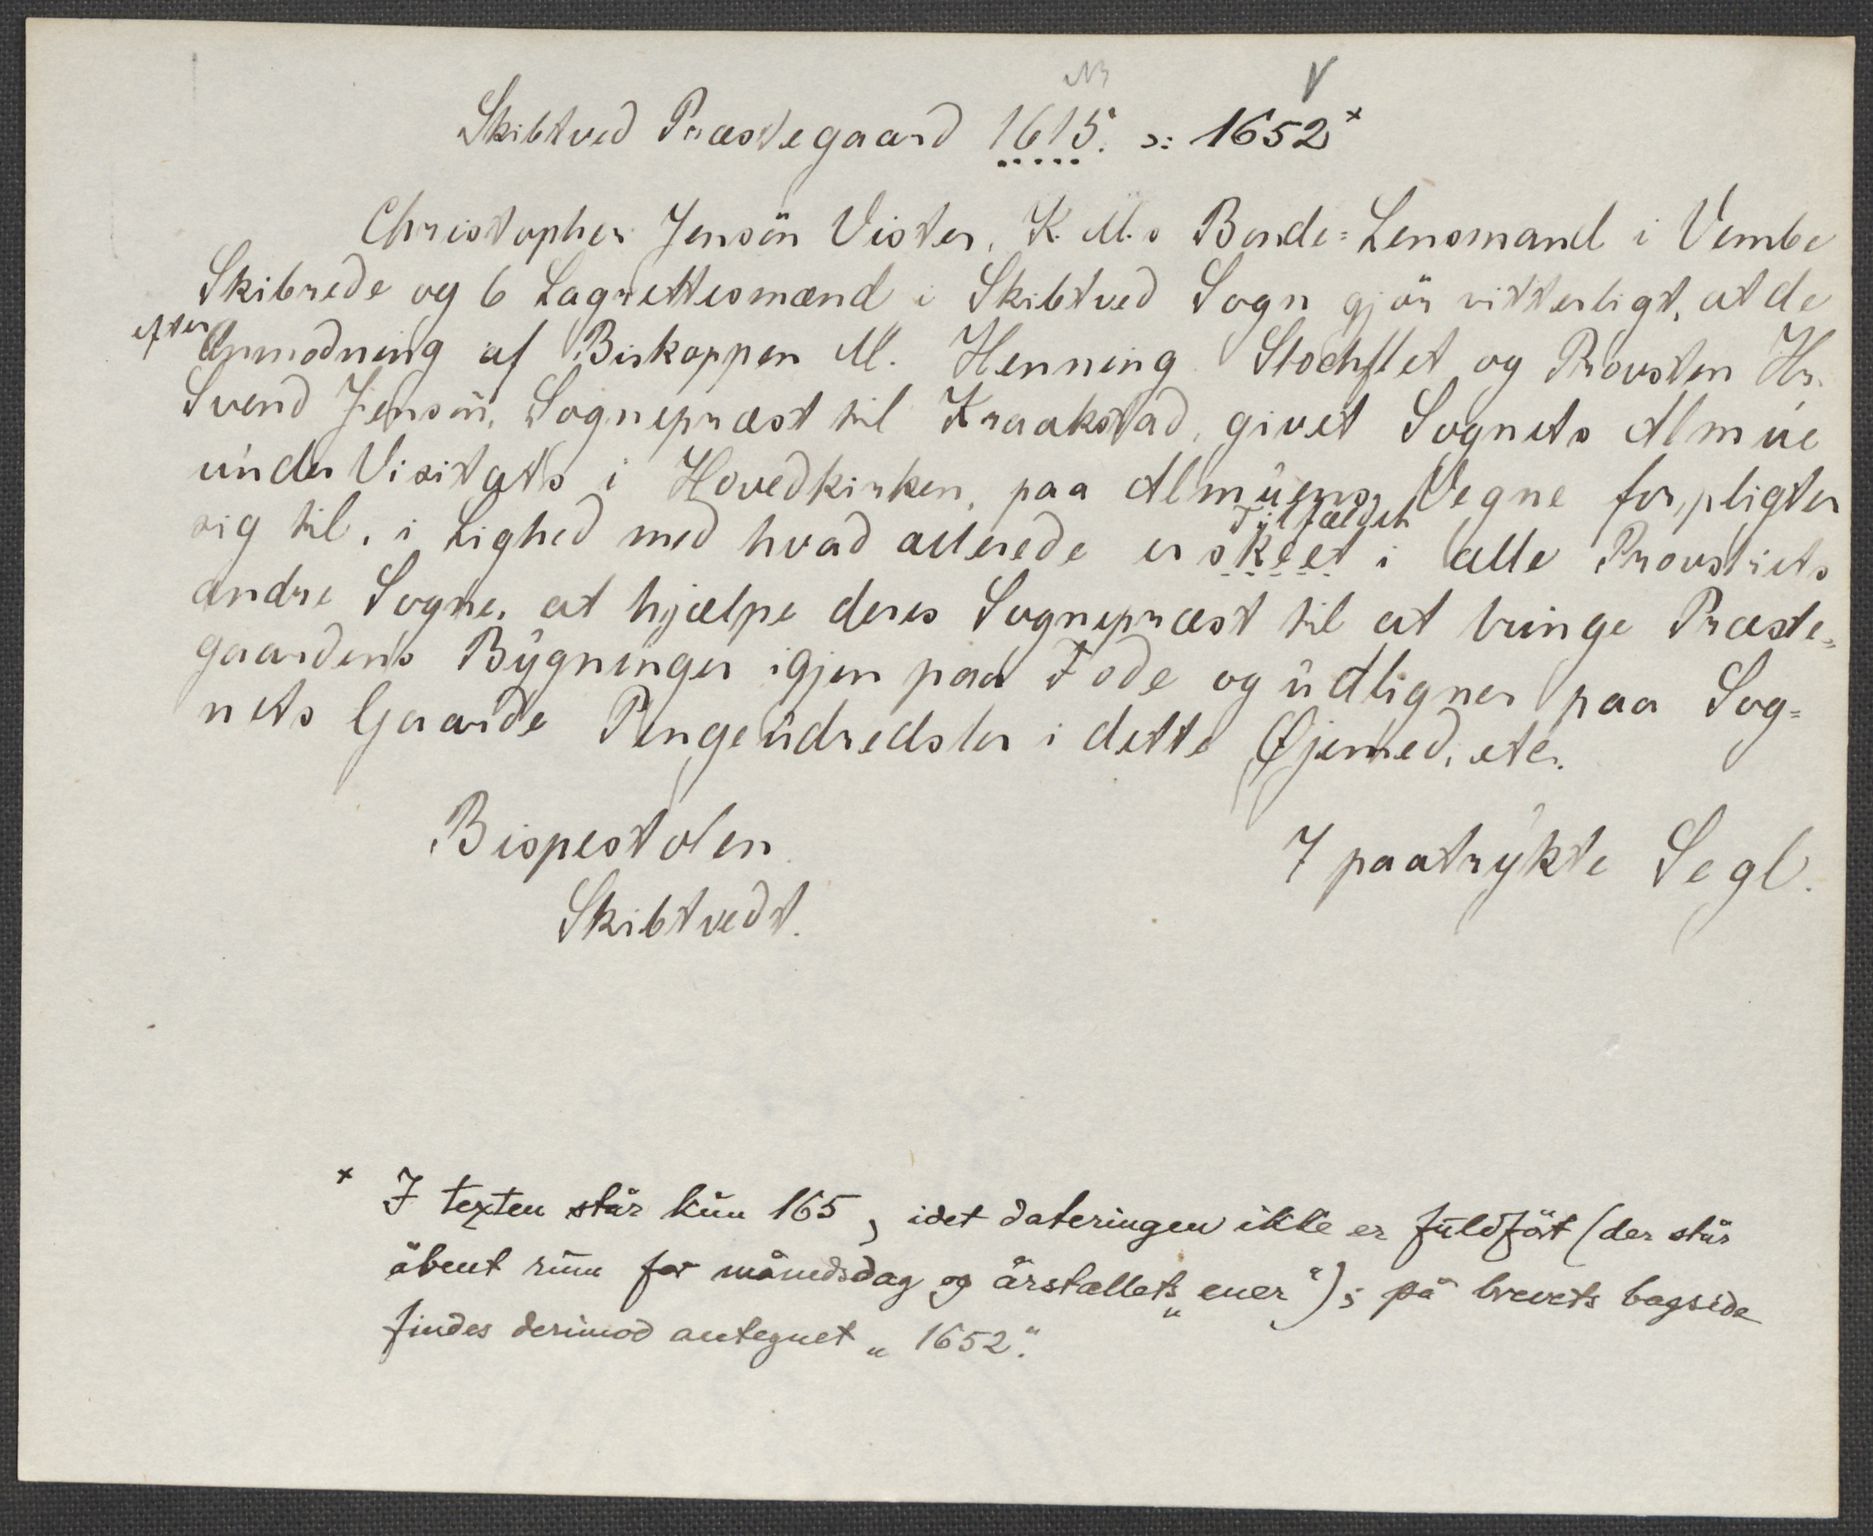 NB V
Skibtved Præstegaard 1615. ɔ: 1652 ×
Christopher Jensön Vister, K. M.s Bonde=Lensmand i Vembe
Skibrede og 6 Lagrettesmænd i Skibtved Sogn gjör vitterligt, at de
efter Anmodning af Biskoppen M. Henning Stochflet og Provsten Hr.
Svend Jensön, Sognepræst til Kraakstad, givet Sognets Almue
under Visitats i Hovedkirken, paa Almuens Vegne forpligter
Tilfældet
sig til, i Lighed med hvad allerede er skeet i alle Provstiets
andre Sogne, at hjælpe deres Sognepræst til at bringe Præste=
gaardens Bygninger igjen paa Fode og udligner paa Sog=
nets Gaarde Pengeudredsler i dette Øjemed, etc.
Bispestolen
7 paatrykte Segl.
Skibtvedt.
× I texten står kun 165 , idet dateringen ikke er fuldfört (der står
åbent rum for månedsdag og årstallets „ener“); på brevets bagside
findes derimod antegnet „1652“.